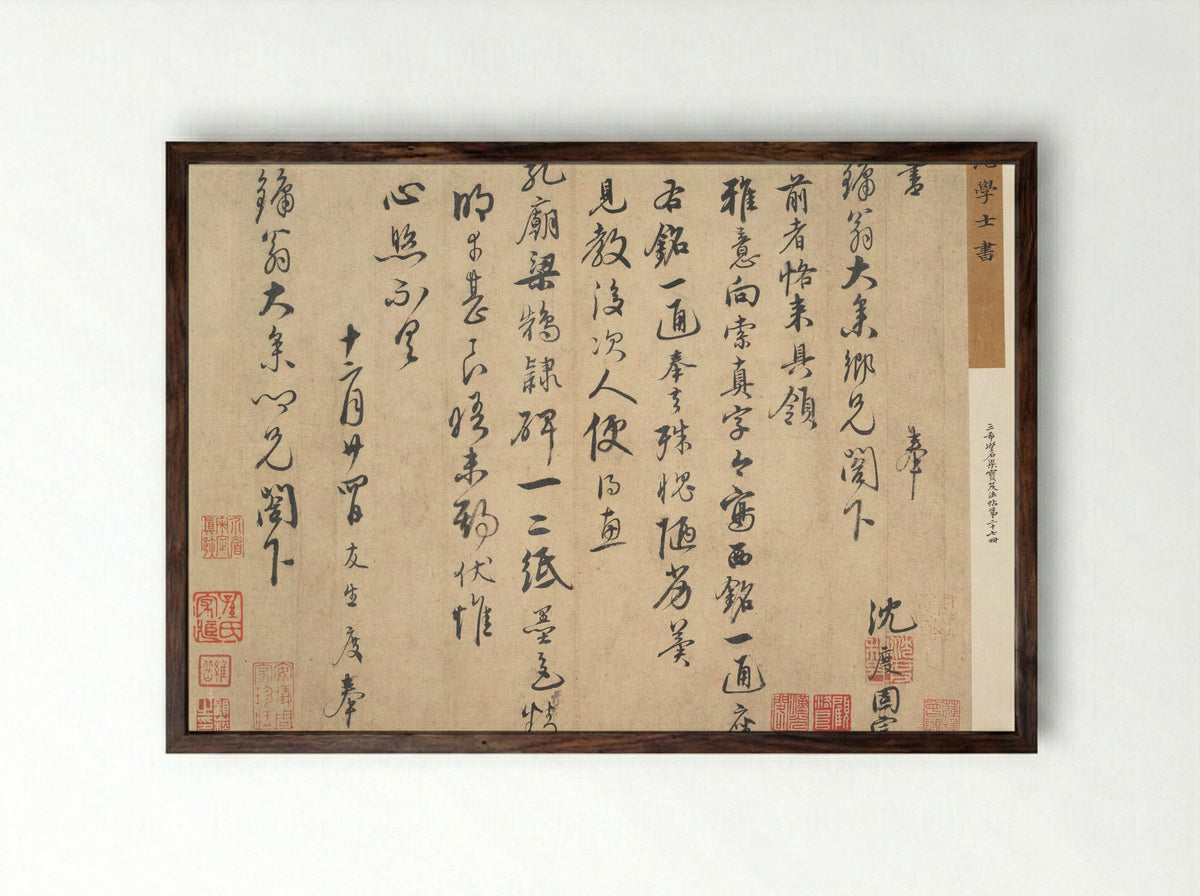 學士書
三希堂石渠寶笈法帖第二十七冊
書
奉
沈度固
鏞翁大參鄉兄閣下
前者恪來具領
雅意向索真字今寫西銘一通座
右銘一通奉去殊愧陋劣冀
見教後次人便得惠
孔廟梁鵠隸碑一二紙墨色精
明者甚良晤未期伏惟
心照不具
十二月廿四日友生度奉
鏞翁大參鄉兄閣下